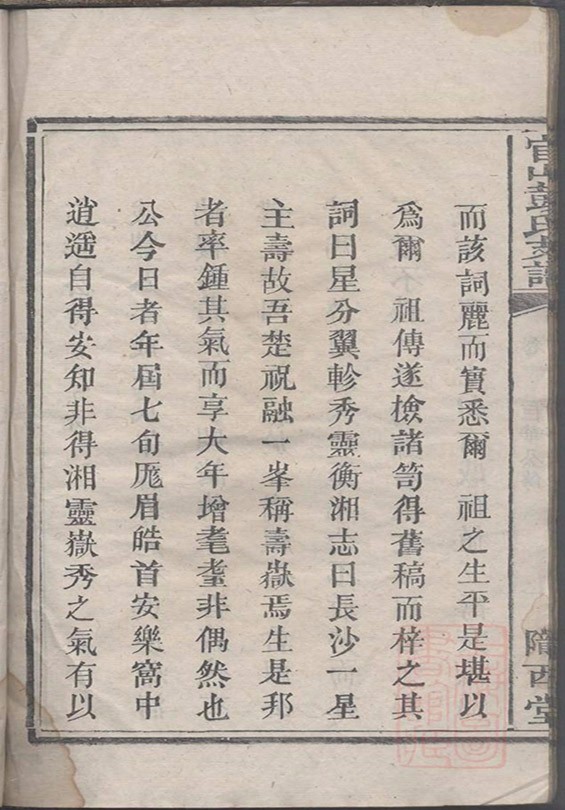 而該詞麗而實悉爾　祖之生平是堪以
爲爾　祖傳遂檢諸笥得舊稿而梓之其
詞曰星分翼軫秀靈衡湘志曰長沙一星
主壽故吾楚祝融一峯稱壽嶽焉生是邦
者率鍾其氣而享大年增耄耋非偶然也
公今日者年屆七旬厖眉皓首安樂窩中
逍遥自得安知非得湘靈嶽秀之氣有以